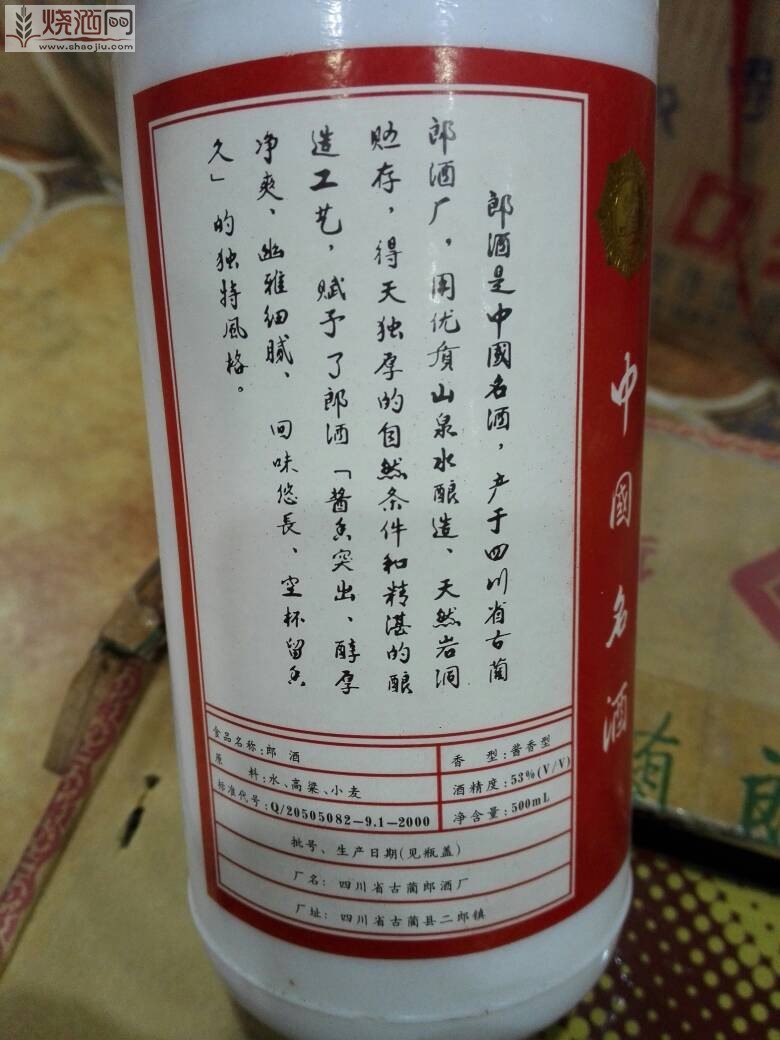 烧酒网
www.shaojiu.com
郎酒是中國名酒，产于四川省古蔺
郎酒厂，用优质山泉水酿造、天然岩洞
贮存，得天独厚的自然条件和精湛的酿
造工艺，赋予了郎酒「酱香突出、醇厚
净爽、幽雅细腻、回味悠長、空杯留香
久」的独特風格。
中國名酒
食品名称:郎 酒
香 型:酱香型
原 料:水、高粱、小麦
酒精度:53%(V/V)
标准代号:Q/20505082-9.1-2000
净含量:500mL
批号、生产日期(见瓶盖)
厂名: 四川省古蔺郎酒厂
厂址: 四川省古蔺县二郎镇